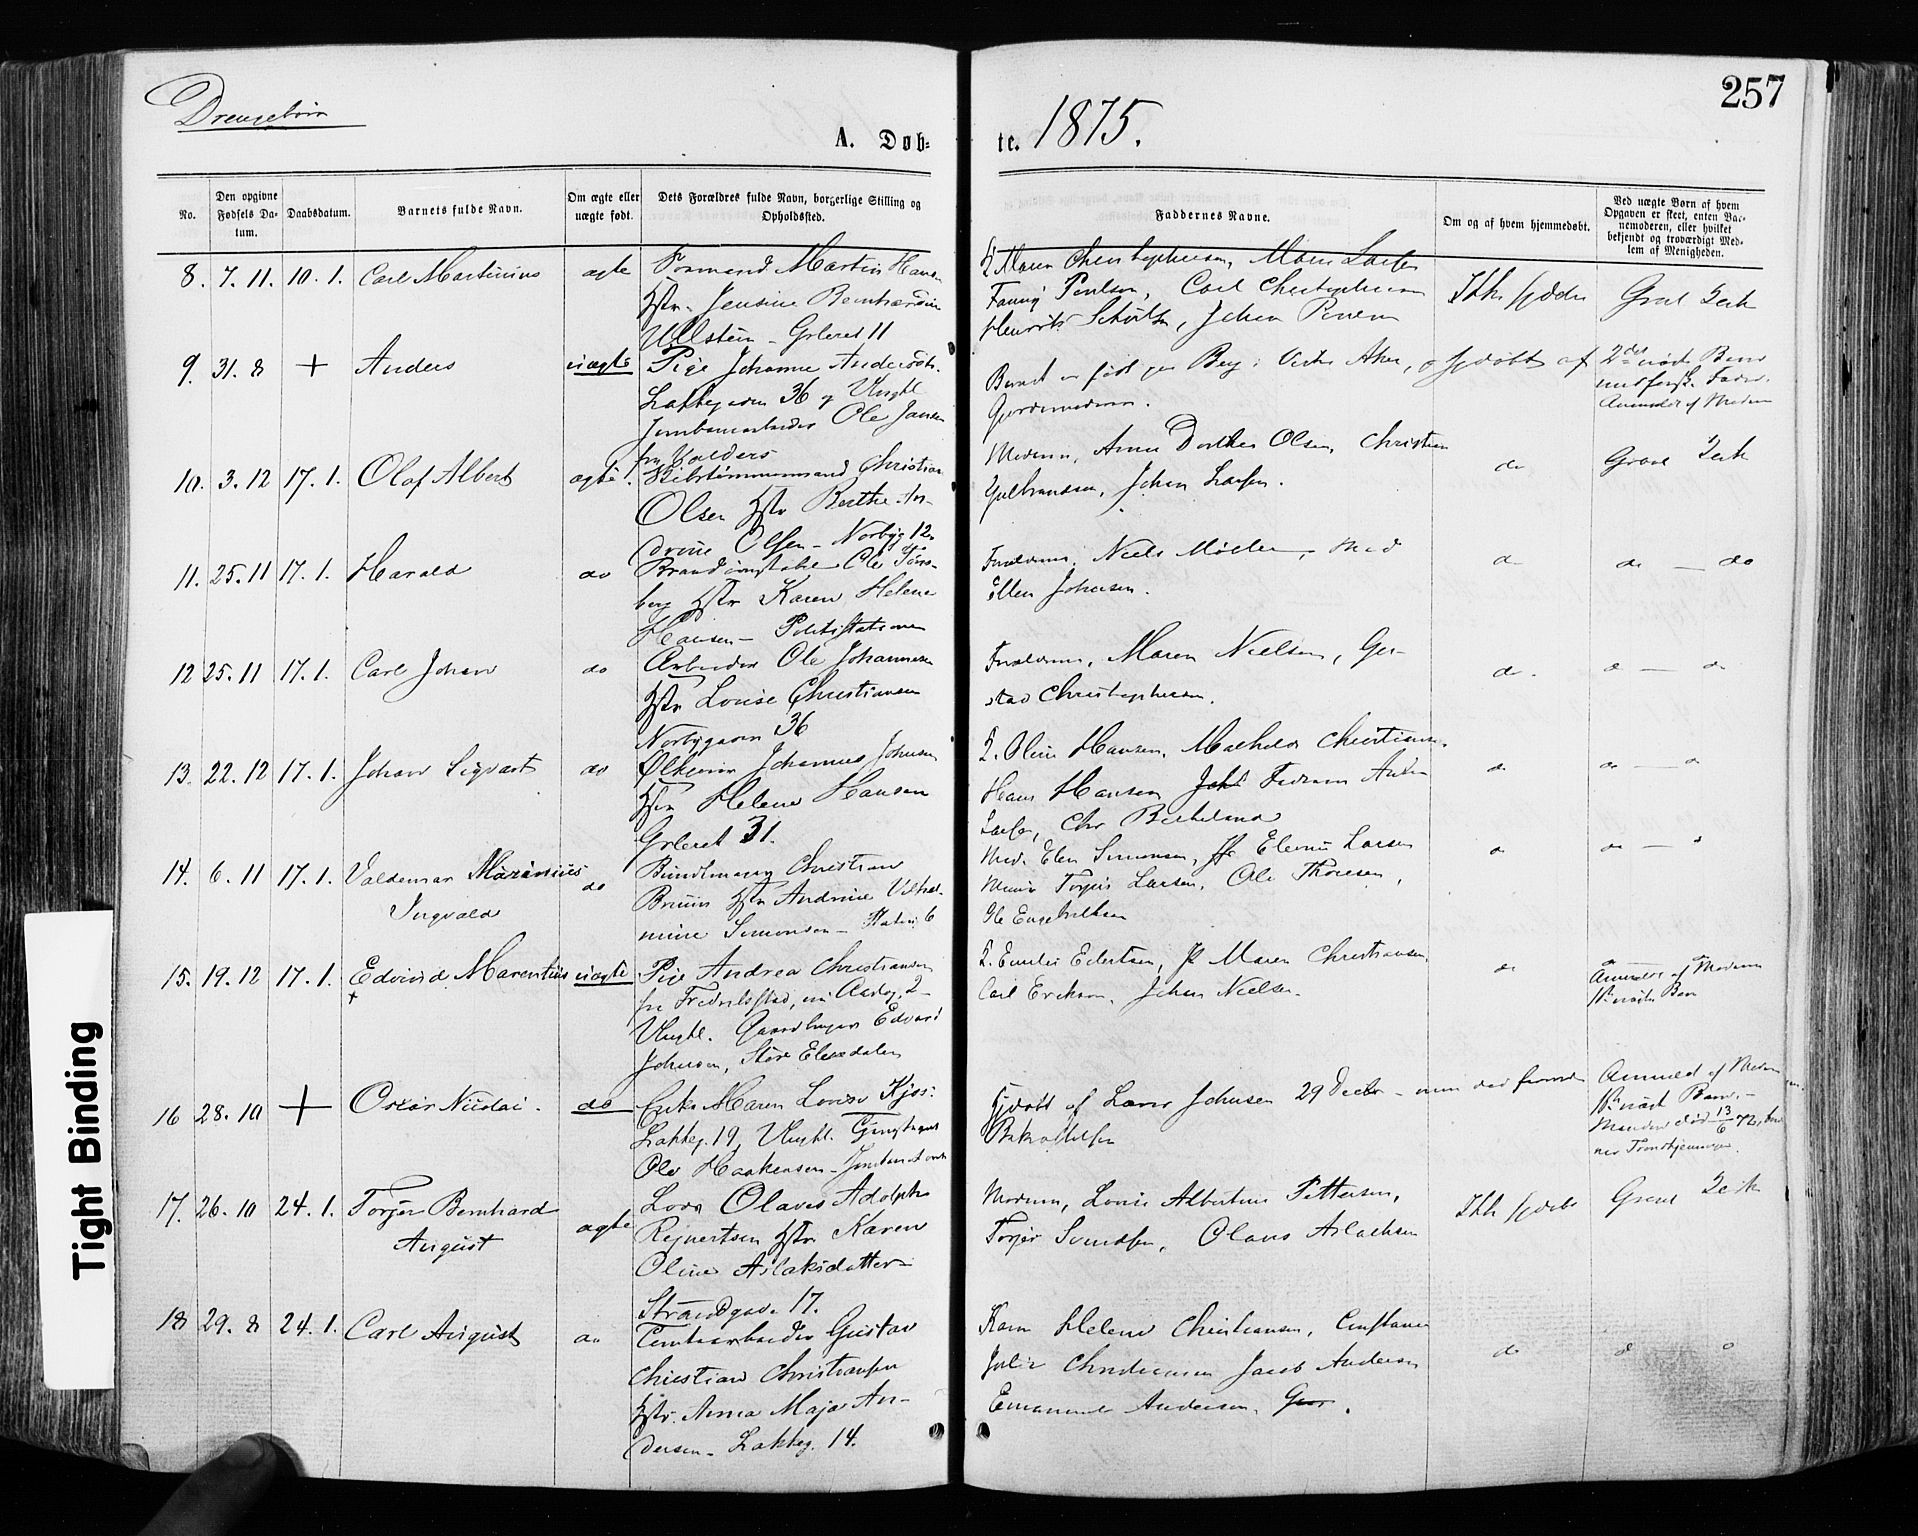 Drengebørn
257
A. Døb-
te. 1875.
No.
Den opgivne Fødsels Da-tum.
Daabsdatum.
Barnets fulde Navn.
Om ægte eller uægte født.
Dets Forældres fulde Navn, borgerlige Stilling og Opholdssted.
Faddernes Navne.
Om og af hvem hjemmedøbt.
Ved uægte Børn af hvem Opgaven er skeet, enten Bar-nemoderen, eller hvilket bekjendt og troværdigt Med-lem af Menigheden.
8. 7. 11. 10. 1. Carl Martinius ægte Formand Martin Hansen
Hstr. Jensine Bernhardine
Ullstein - Grleret 11
Maren Christophersen, Maren Larsen
Fanny Poulsen, Carl Christophersen
Henrik Schultz, Johan
Ikke hjdøbt
9. 31. 8 + Anders uægte Pige Johanne Andersdtr.
Lakkegaden 36 og Ungkl.
Jernbanearbeider Ole Jansen
fra Valders
Barnet er født paa Berg i Vestre Aker, og hjdøbt af
Gjordemoderen.
2det uægte Barn
Anmeldt af Moderen
10. 3. 12 17. 1. Olaf Albert ægte. Skibstømmermand Christian
Olsen Hstr Berthe An-
drine Olsen - Norbyg 12
Moderen, Anne Dorthea Olsen, Christian
Gulbrandsen, Johan Larsen.
do
11. 25. 11 17. 1. Harald do Brandconstabel Ole Tøns-
berg Hstr Karen Helene
Hansen - Politistationen
Forældrene, Niels Møller, Mad
Ellen Johansen.
do
do — do
12 25. 11 17. 1. Carl Johan do Arbeider Ole Johannesen
Hstr Lovise Christiansen
Norbygaden 36
Forældrene, Maren Nielsen, Gu-
stav Christophersen.
do.
do — do
13. 22. 12 17. 1. Johan Sigvart do Johannes Johnsen
Hstr Helene Hansen
Grleret 31.
Oline Hansen, Mathilde Christiansen,
Hans Hansen
Larsen, Chr
do
do — do
14. 6. 11 17. 1. Valdemar Marinius do
Ingvald
Bundtmager Christian
Bruun Hstr Andrine Vilhel-
mine Simonsen - 6
Mad. Elen Simonsen, Larsen
Larsen, Ole Thoresen,
Ole Engebretsen
do
do — do
15. 19. 12 17. 1. Edvard Marentius uægte Pige Andrea Christiansen
fra Fredrikstad, nu 2
Ungkl. Gaardbruger Edvard
Johnsen, Store Elvedalen
Emilie Edertsen, Maren Christiansen,
Carl Eriksen, Johan Nielsen.
do
Anmeldt af Moderen
1ste uægte Barn
16 28. 10 + Oscar Nicolai. do Enke Maren Lovise Kjos:
Lakkeg. 19, Ungkl.
Ole Haakensen - Jernbanearb
Hjdøbt af Lars Johnsen 29 Decbr - men død førend
Bekræftelsen
Anmeldt af Moderen
1ste uægte Barn -
Manden død 13/6 72,
17. 26. 10 24. 1. Torger Bernhard ægte Lods Olaves Adolph
August
Rejnertsen Hstr Karen
Oline Aslaksdatter -
Strandgade 17.
Moderen, Lovise Albertine Pettersen,
Torger Svendsen, Olaus Aslaksen
Ikke hjdøbt
18 29. 8 24. 1. Carl August do Gustav
Christian Christiansen
Hstr. Anna Maja An-
dersen - Lakkeg. 14.
Karen Helene Christiansen, Constance
Julie Jacob Andersen
Emanuel Andersen
do
Tight Binding